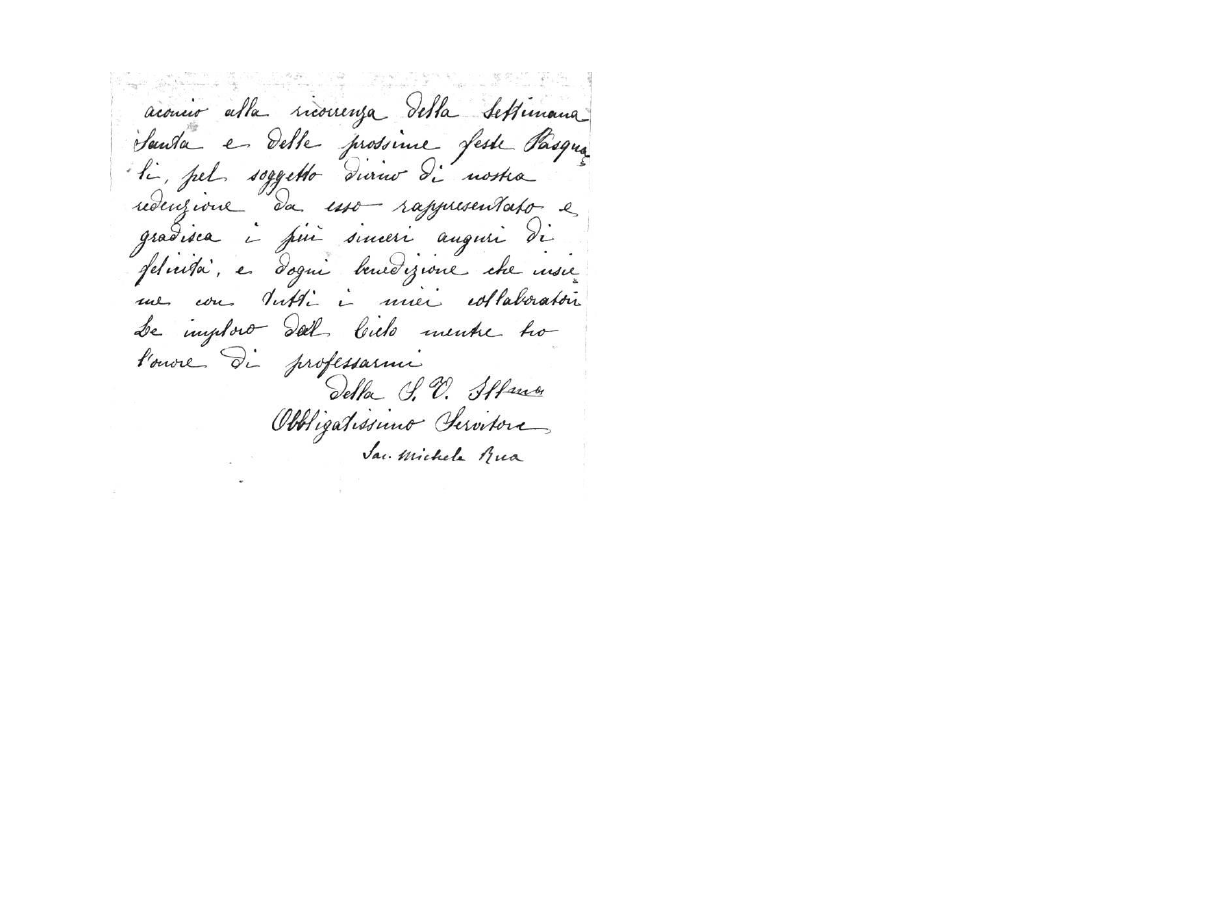 acconcio alla ricorrenza della Settimana
Santa e delle prossime feste Pasqua=
li, pel soggetto divino di nostra
redenzione da esso rappresentato e
gradisca i più sinceri auguri di
felicità, e d'ogni benedizione che insie=
me con tutti i miei collaboratori
Le imploro dal Cielo mentre ho
l'onore di professarmi
Della S. V. Ill.ma
Obbligatissimo Servitore
Sac. Michele Rua